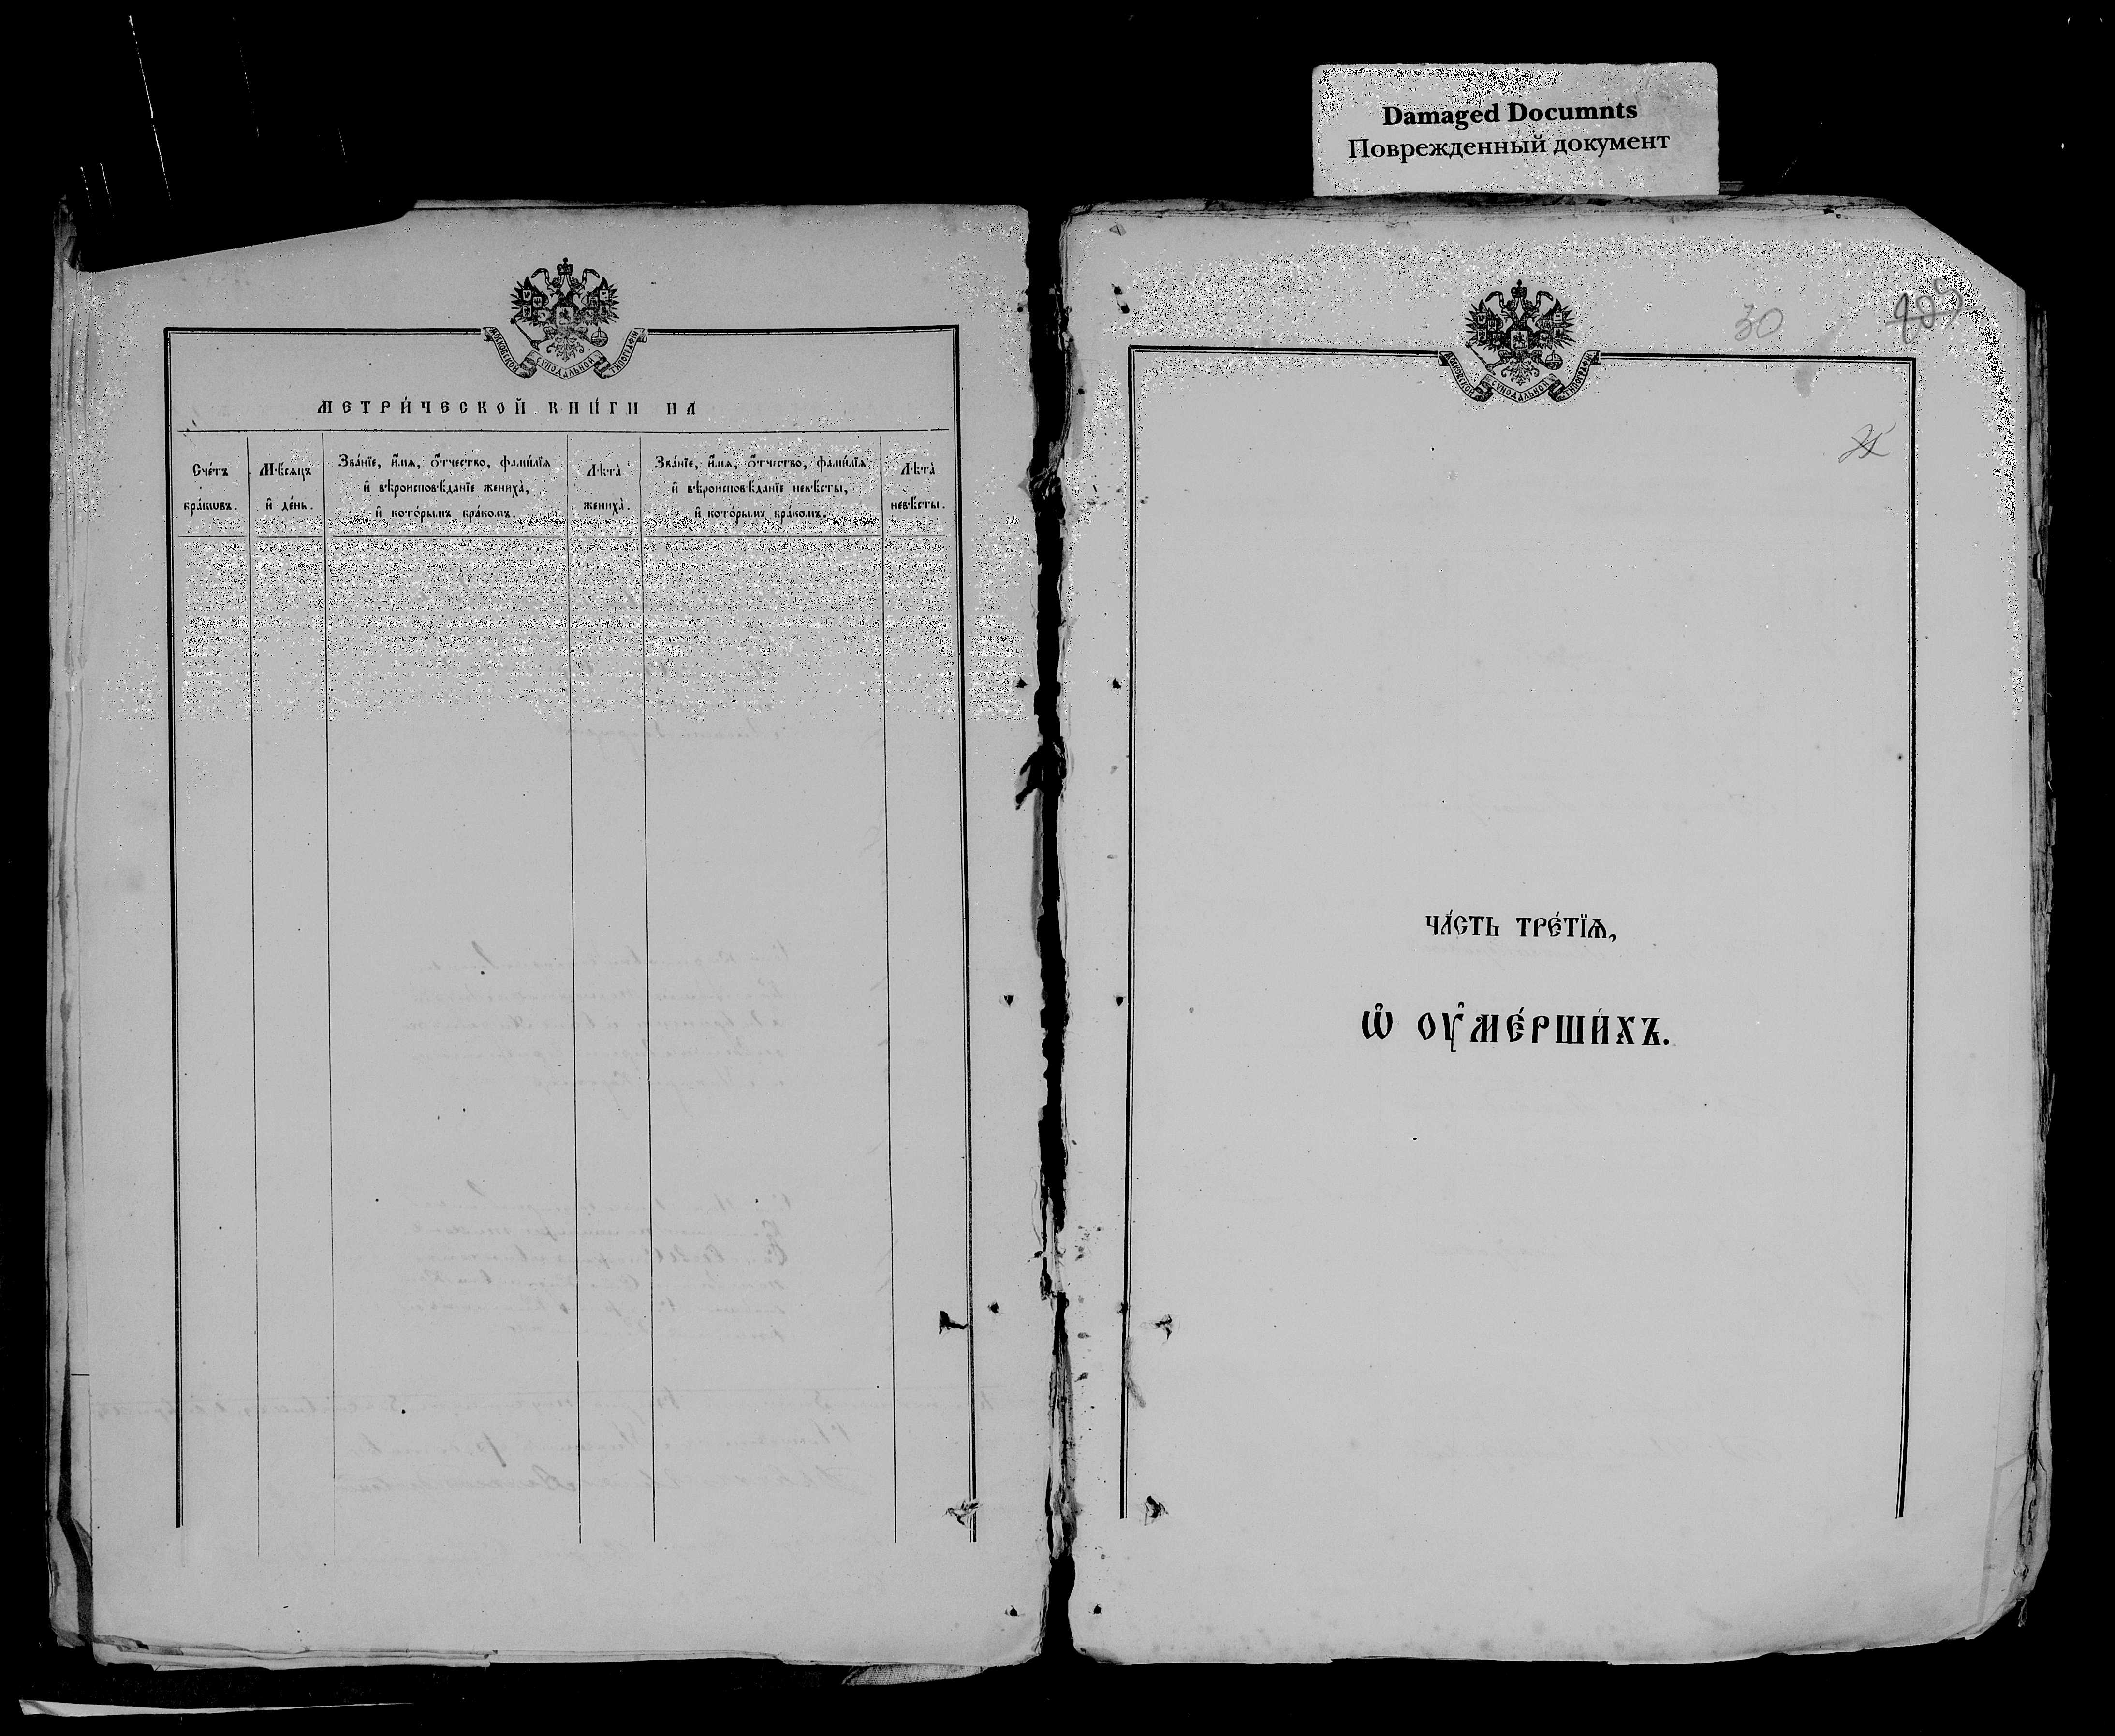 Damaged Documnts
Поврежденный документ
МОСКОВСКОЙ СѴНОДАЛЬНОЙ ТИПОГРАФІИ
МЕТРИ́ЧЕСКОЙ КНИ́ГИ НА
Сче́тъ
бра́кѡвъ.
Мѣ́сяцъ
и҆ де́нь.
Зва́нїе, и҆́мя, ѻ҆́тчество, фами́лїя
и҆ вѣроисповѣ́данїе жениха̀,
и҆ кото́рымъ бра́комъ.
Лѣта̀
жениха̀.
Зва́нїе, и҆́мя, ѻ҆́тчество, фами́лїя
и҆ вѣроисповѣ́данїе невѣ́сты,
и҆ кото́рымъ бра́комъ.
Лѣта̀
невѣ́сты.
30
205
МОСКОВСКОЙ СѴНОДАЛЬНОЙ ТИПОГРАФІИ
ЧА́СТЬ ТРЕ́ТЇѦ,
Ѡ҆ ОУ҆МЕ́РШИ́ХЪ.